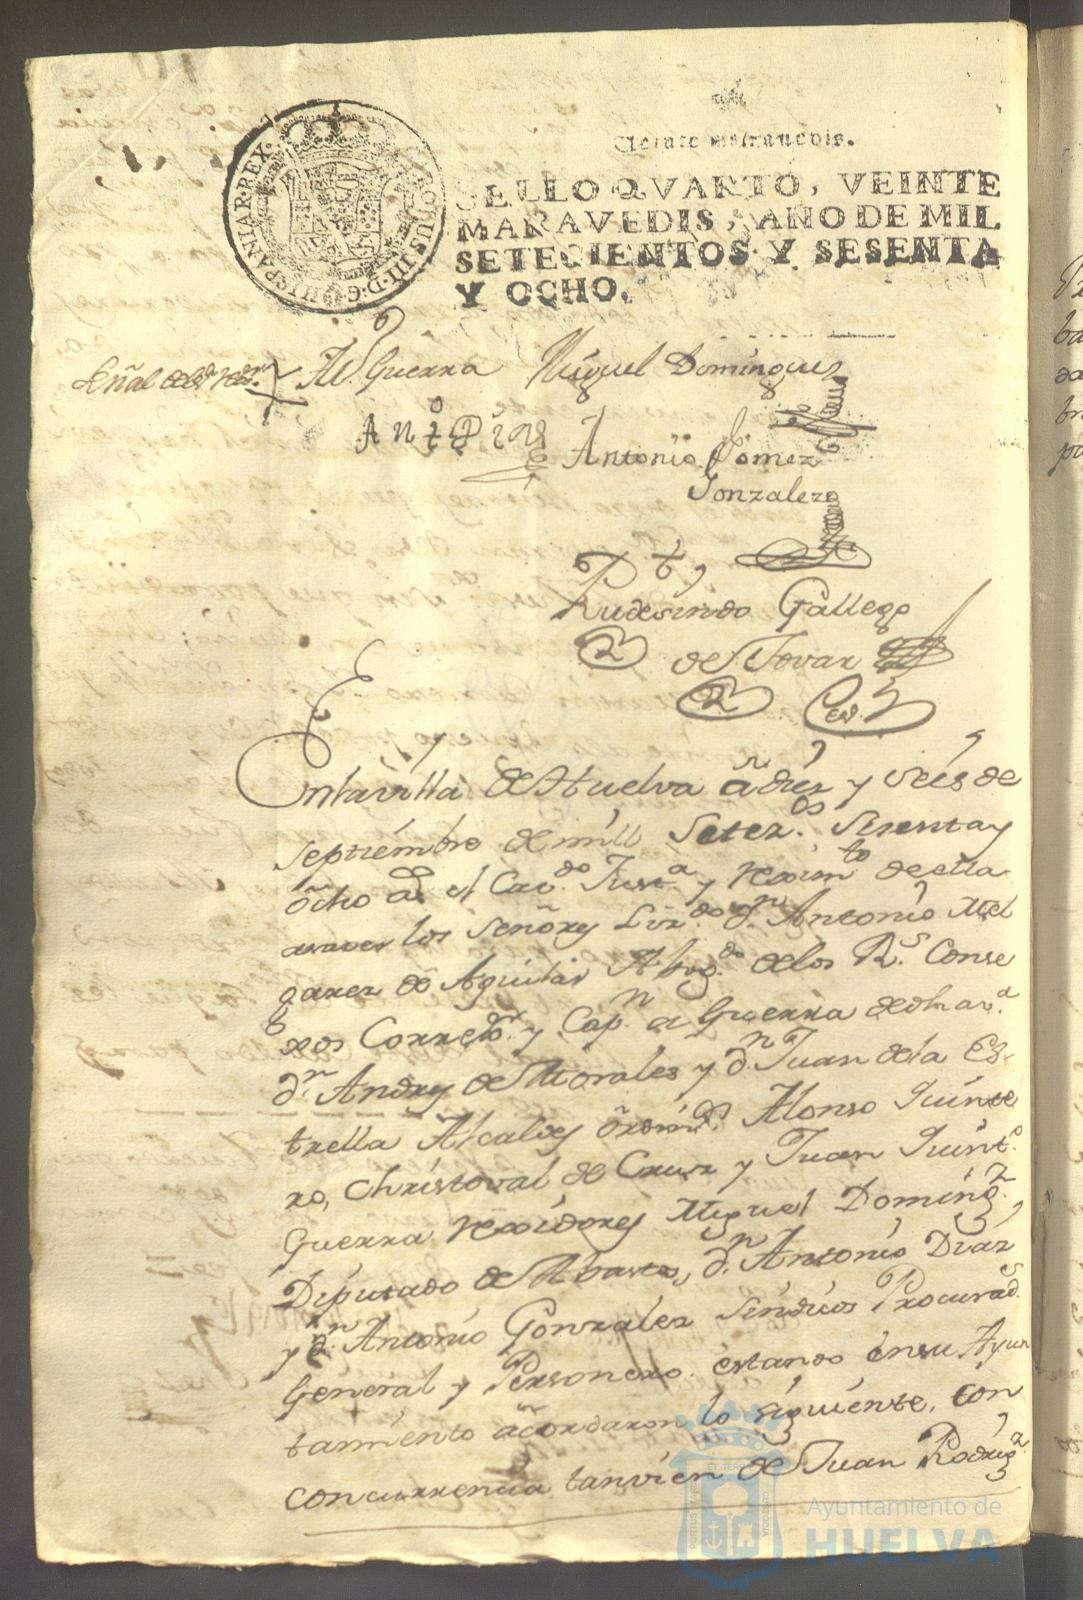 Veinte maravedis.
SELLO QVARTO, VEINTE
MARAVEDIS, AÑO DE MIL
SETECIENTOS Y SESENTA
Y OCHO.
CAROLUS III D.G. HISPANIAR.REX.
Guerra Miguel Dominguez
Antonio Gomez
Gonzalez
Rudesindo Gallego
de Tovar
En la villa de Huelva a diez y seis de
septiembre de mill Setez.os Sesenta y
ocho el Cav.do Just.a y rexim.to de ella
a saver los Señores Liz.do d.n Antonio Mel
garez de Aguilar Abog.do de los R.s Conse
xos Corre.or y Cap.n a Guerra de dha
d.n Andres de Morales y d.n Juan de la Es-
trella Alcaldes Alonso Quinte
ro, Christoval de Cruz y Juan Quint.o
Guerra rexidores Miguel Doming.z
Diputado de Abastos, d.n Antonio Diaz
y d.n Antonio Gonzalez Sindicos Procurad.s
General y Personero estando en su Ayun
tamiento acordaron lo siguiente, con
concurrencia tanvien de Juan Rodrig.z
Ayuntamiento de
HUELVA